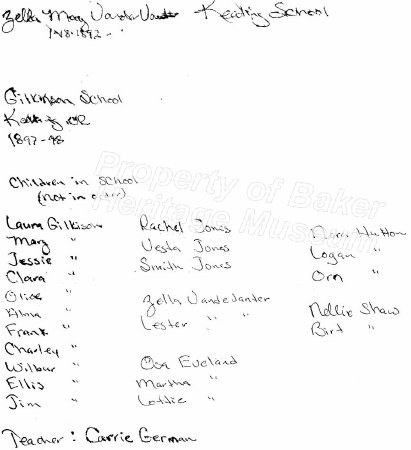 Zella Mary VanderVander Keating School
Gilkison School
Keating OR
1897-98
Children in School
(not in order)
Laura Gilkison Rachel Jones Nora Hutton
Mary " Vesta Jones Logan "
Jessie " Smith Jones Orn "
Clara "
Olive " Zella Vandevander Nellie Shaw
Alma " Lester " " Birt "
Frank "
Charley "
Wilbur " Ova Eveland
Ellis " Martha "
Jim " Lottie "
Teacher: Carrie German
Property of Baker
Heritage Museum